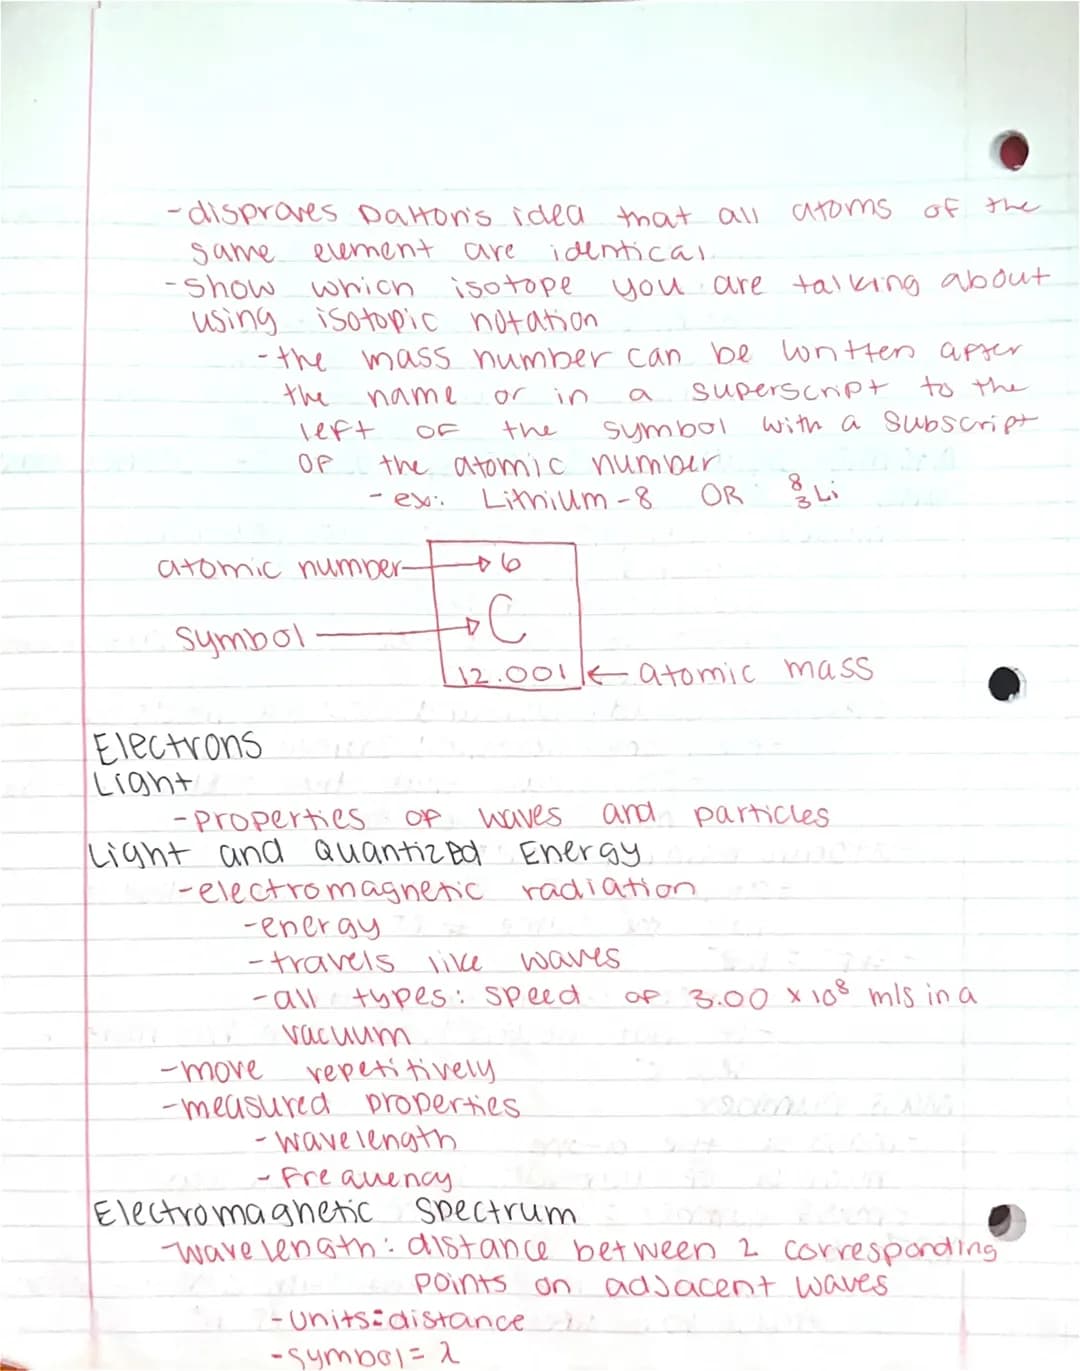 -disproves Dalton's idea that all atoms of the
same element are identical
-show which isotope you are talking about
using isotopic notation
-the mass number can be written after
the name or in a superscript to the
left of the symbol with a subscript
of the atomic number
-ex: Lithium-8 OR ⁸₃Li
atomic number → 6
symbol → C
12.001 ← atomic mass
Electrons
Light
-properties of waves and particles
Light and Quantized Energy
-electromagnetic radiation
-energy
-travels like waves
-all types: speed of 3.00 x 10⁸ m/s in a
vacuum
-move repetitively
-measured properties
-wavelength
-frequency
Electromagnetic Spectrum
-wavelength: distance between 2 corresponding
points on adjacent waves
-units=distance
-symbol= λ